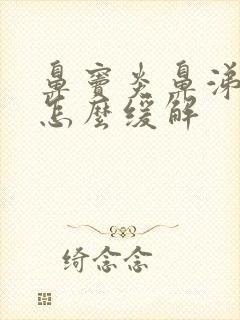 鼻窦炎鼻涕
怎麼缓解
绮念念